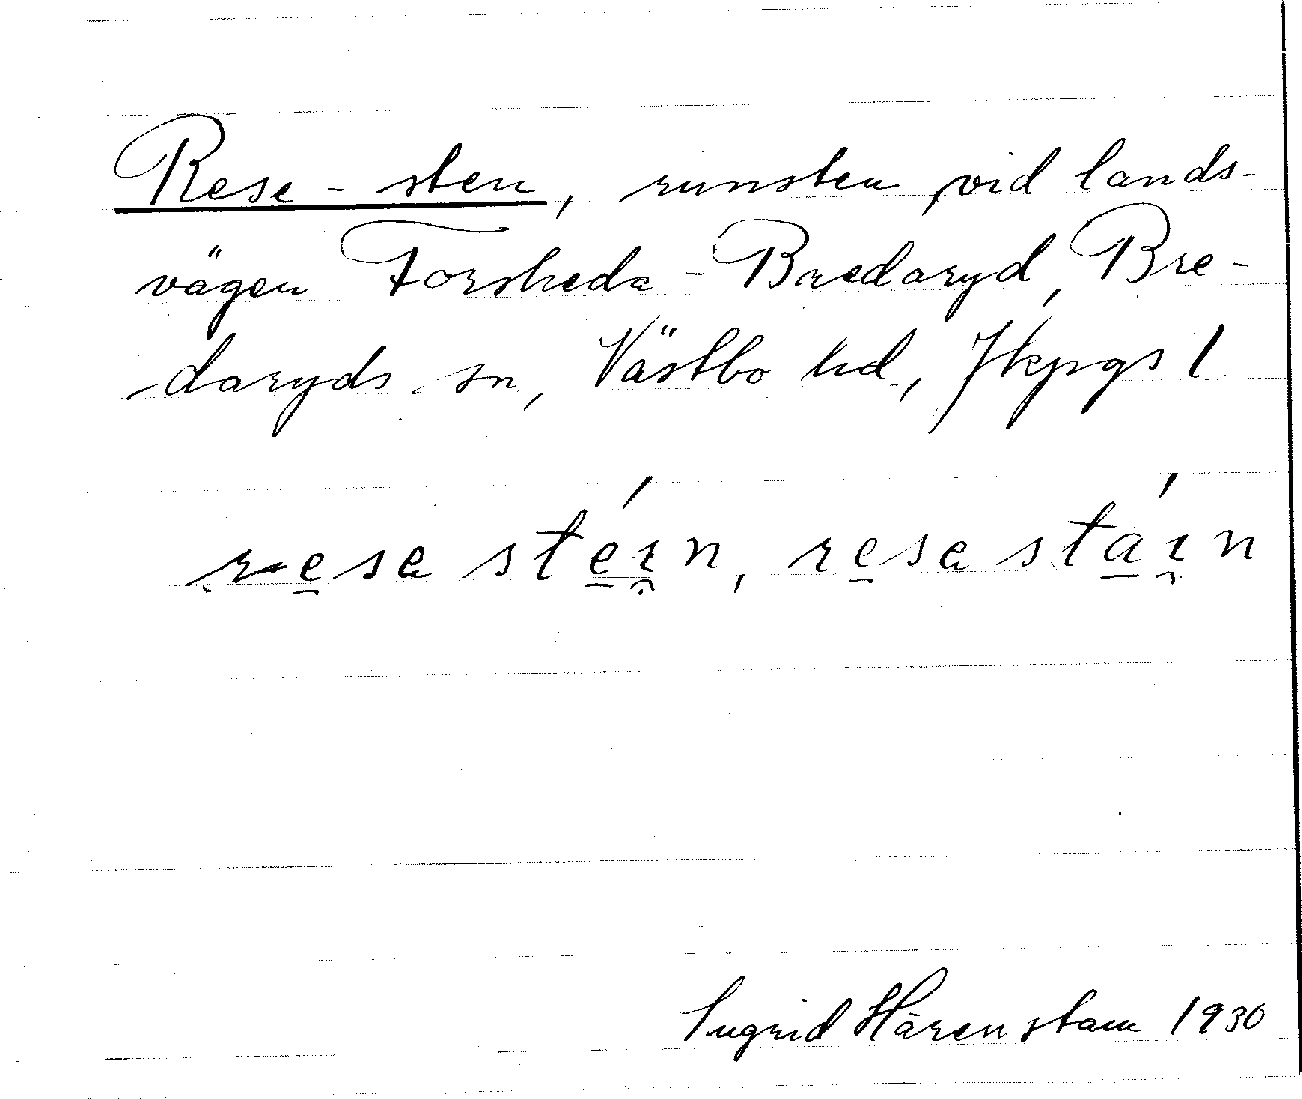 Rese-sten, runsten vid lands-
vägen Forsheda-Bredaryd, Bre-
daryds sn, Västbo hd, Jkpgs l
rese stéin, rese stáin
Ingrid Härenstam 1930